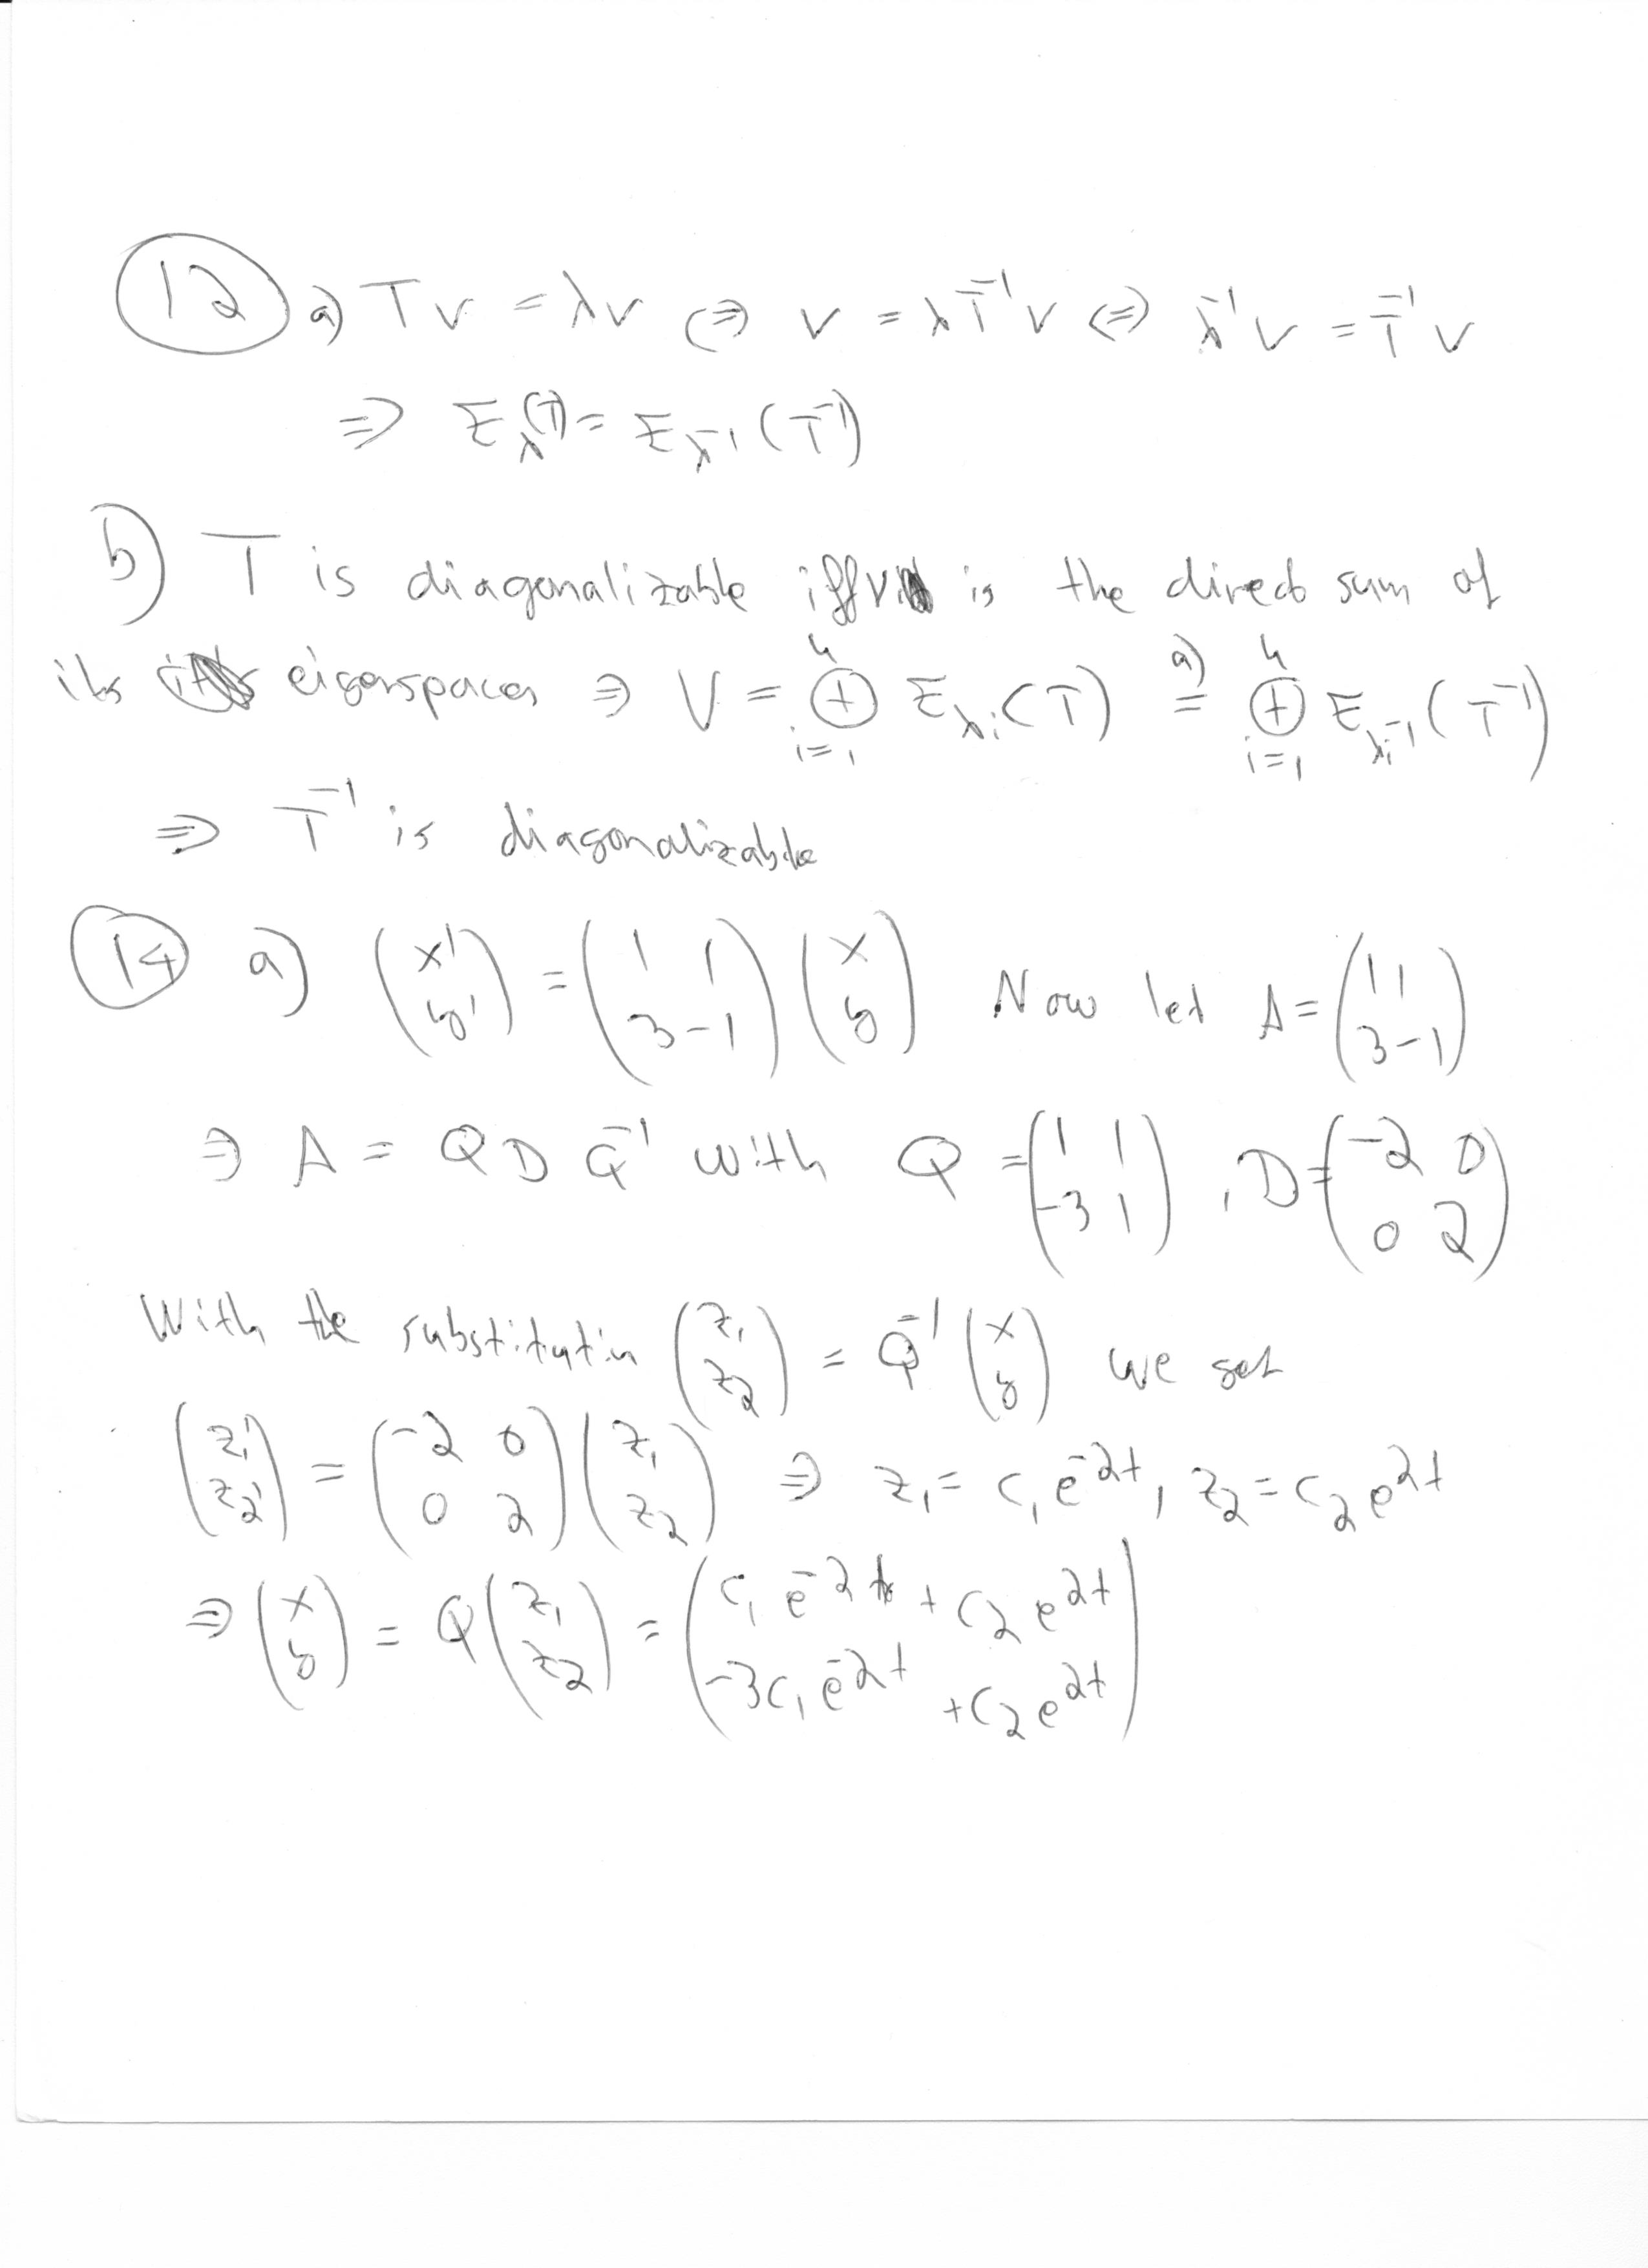 12 a) Tv = λv ⇔ v = λT⁻¹v ⇔ λ⁻¹v = T⁻¹v
⇒ E_λ(T) = E_λ⁻¹(T⁻¹)
b) T is diagonalizable iff V is the direct sum of
its eigenspaces ⇒ V = ⊕_{i=1}^{n} E_{λi}(T) =^{a)} ⊕_{i=1}^{n} E_{λi⁻¹}(T⁻¹)
⇒ T⁻¹ is diagonalizable
14 a) (x' ; y') = (1 1 ; 3 -1) (x ; y) Now let A = (1 1 ; 3 -1)
⇒ A = Q D Q⁻¹ with Q = (1 1 ; -3 1), D = (-2 0 ; 0 2)
With the substitutin (z₁ ; z₂) = Q⁻¹ (x ; y) we get
(z₁' ; z₂') = (-2 0 ; 0 2) (z₁ ; z₂) ⇒ z₁ = c₁e^{-2t}, z₂ = c₂e^{2t}
⇒ (x ; y) = Q (z₁ ; z₂) = (c₁e^{-2t} + c₂e^{2t} ; -3c₁e^{-2t} + c₂e^{2t})